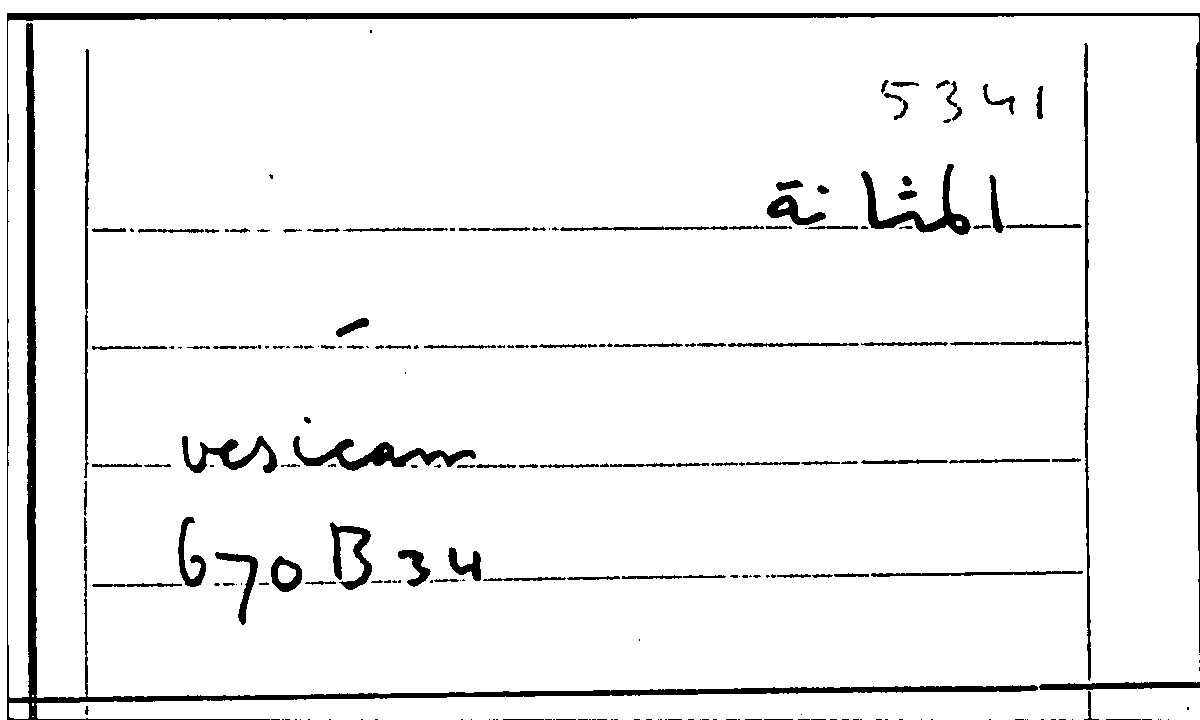 5341
المثانة
–
vesicam
670 B 34